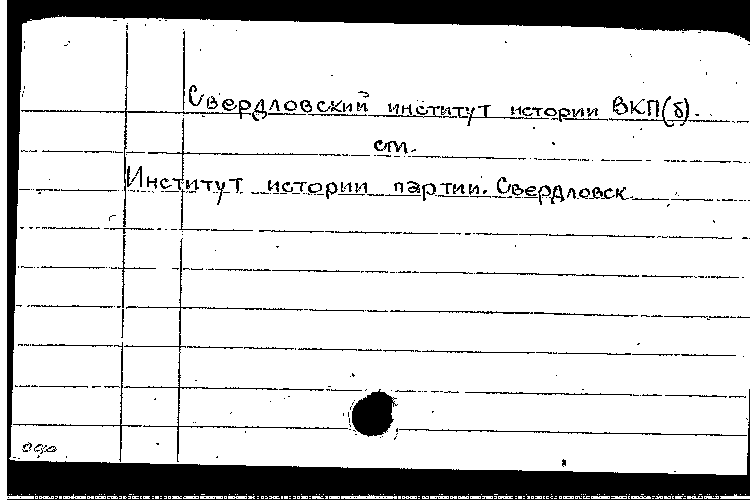 Свердловский институт истории ВКП(б).
см.
Институт истории партии. Свердловск.